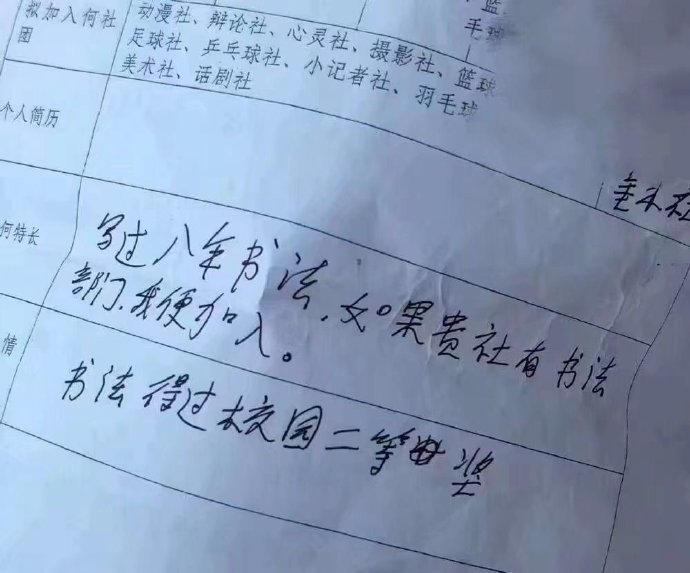 拟加入何社团
动漫社、辩论社、心灵社、摄影社、篮球
足球社、乒乓球社、小记者社、羽毛球
美术社、话剧社
篮
毛球
个人简历
美术社
何特长
写过八年书法，如果贵社有书法
部门，我便加入。
情
书法得过校园二等奖